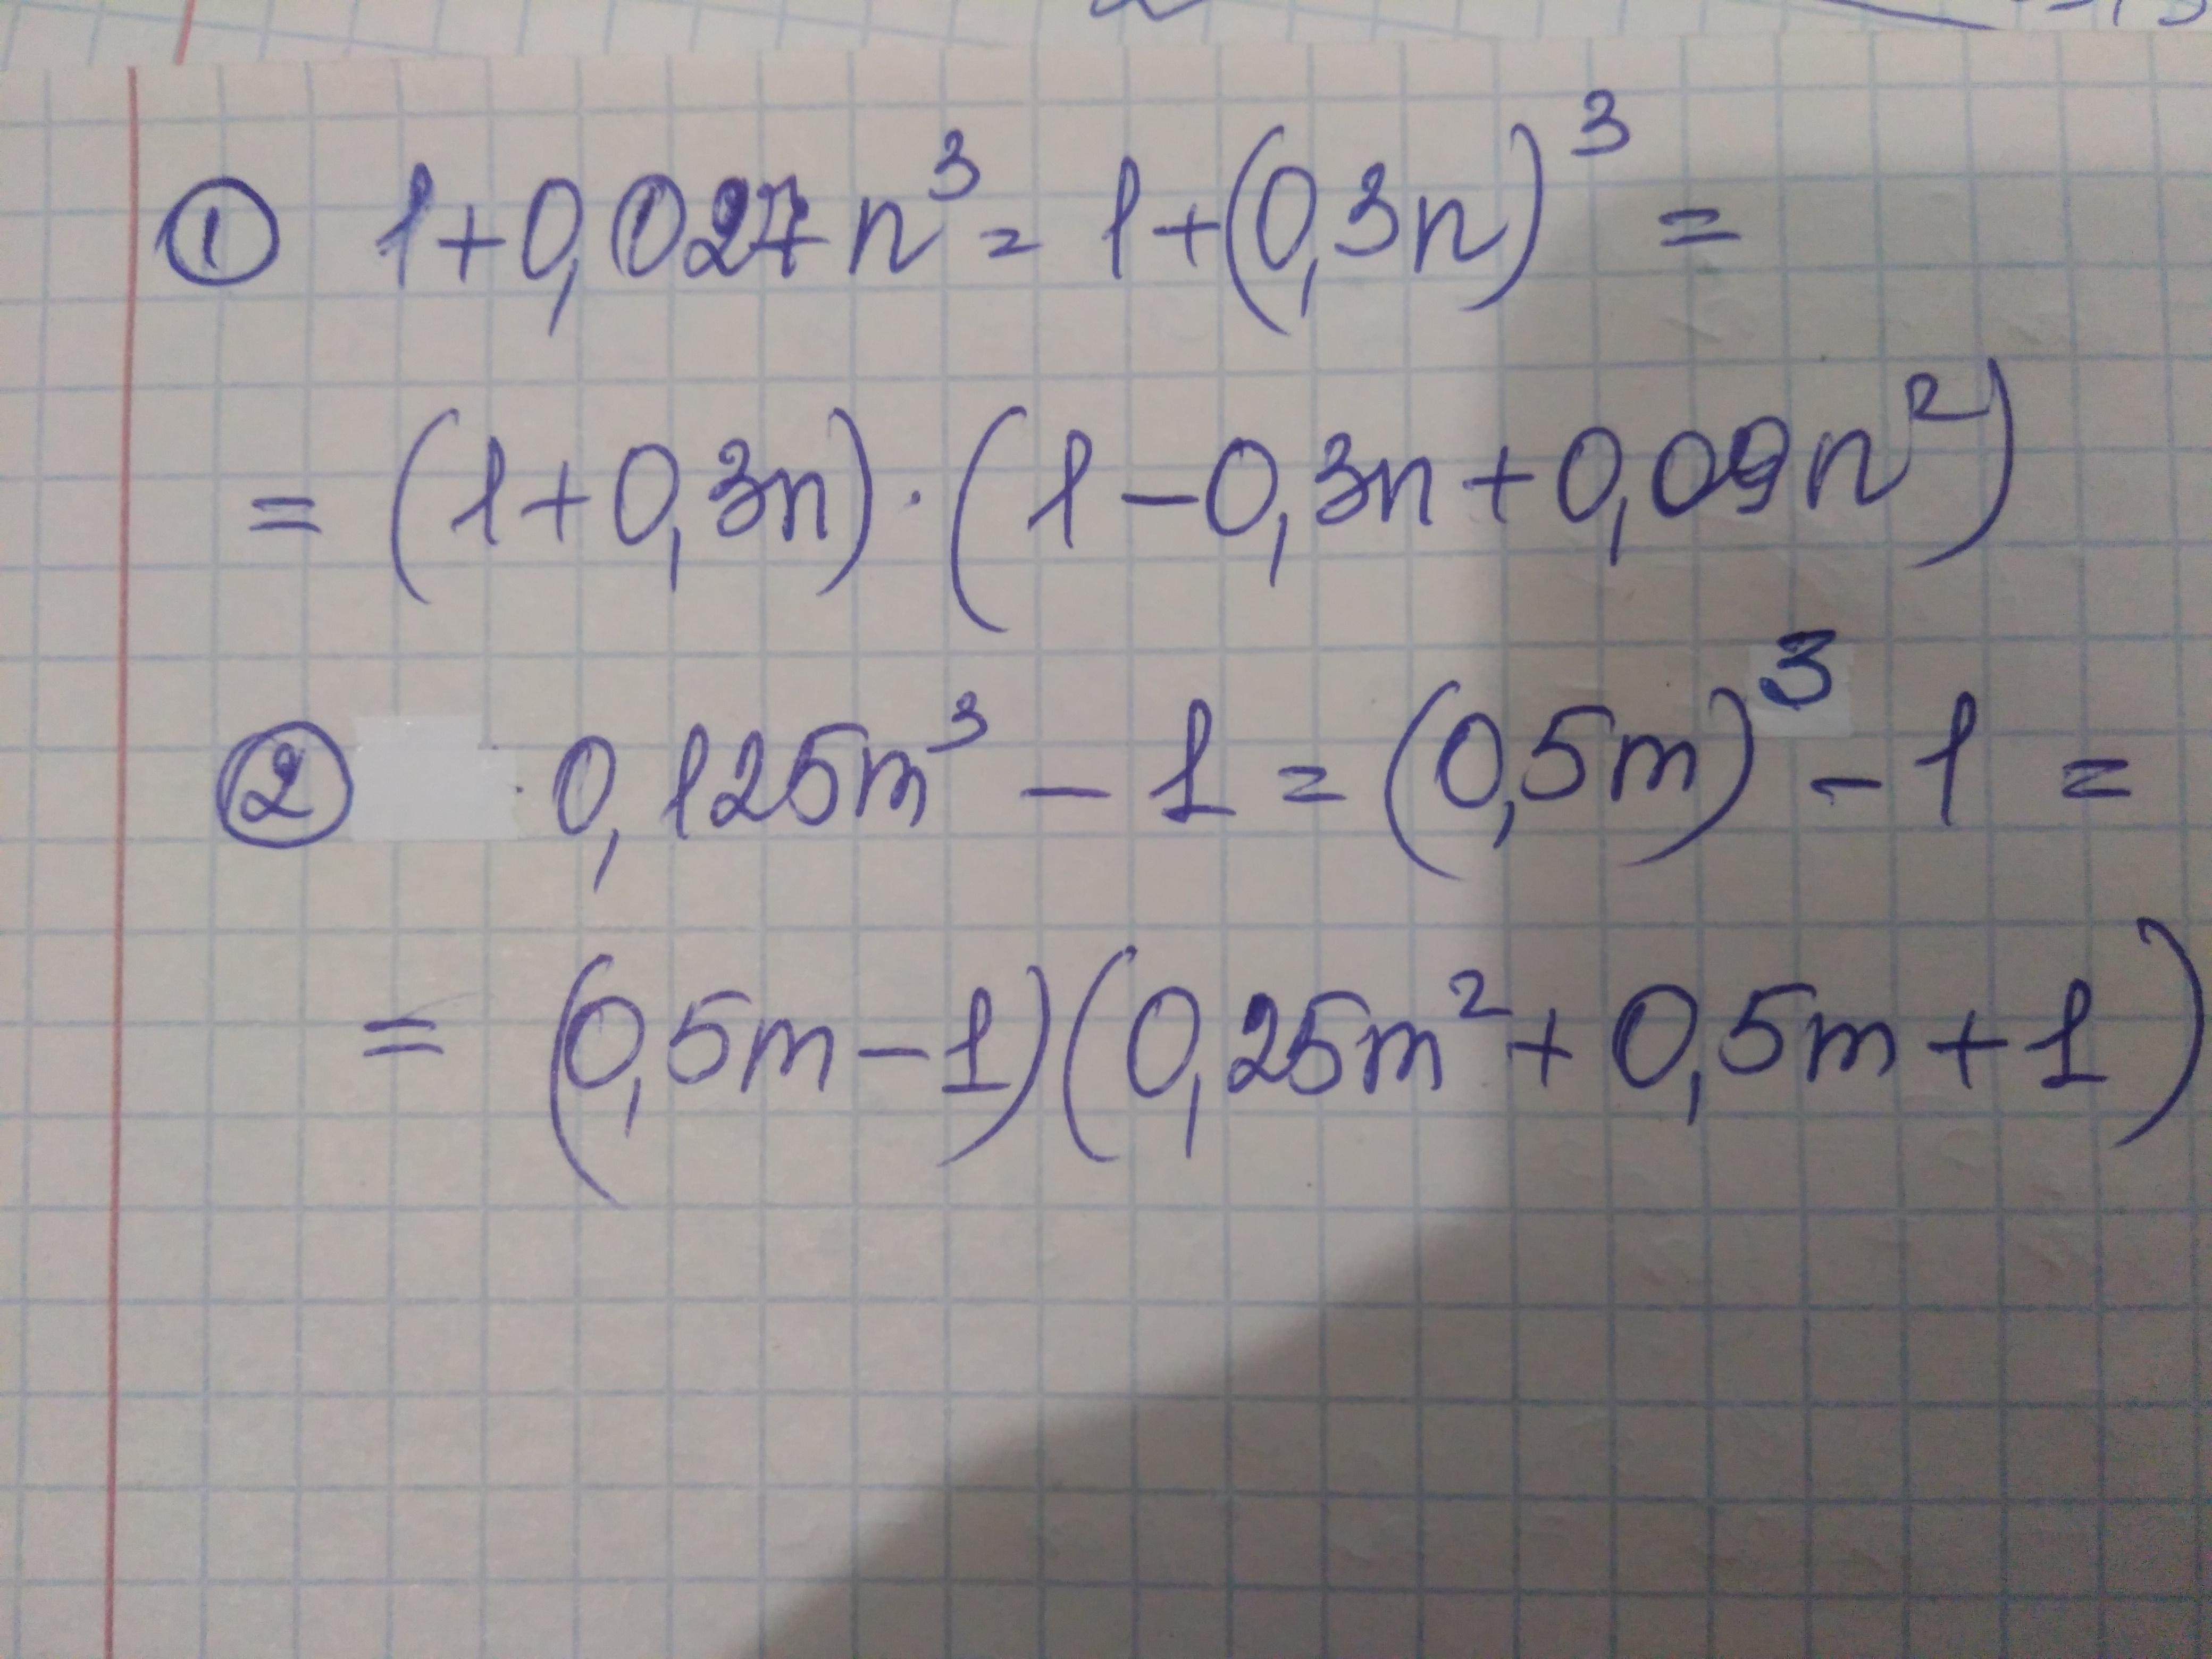 ① 1+0,027n³= 1+(0,3n)³ =
= (1+0,3n)·(1-0,3n+0,09n²)
② 0,125m³ - 1 = (0,5m)³ - 1 =
= (0,5m-1)(0,25m²+0,5m+1)